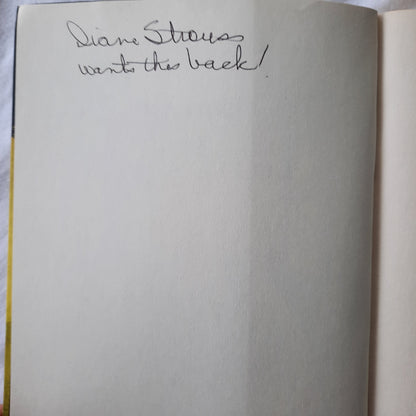 Diane Strauss
wants this back!